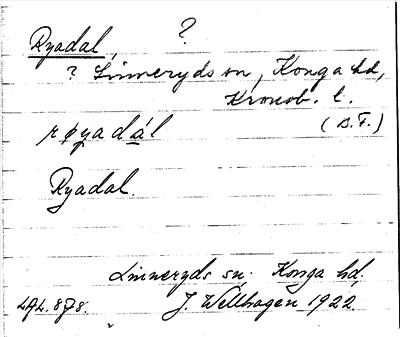 ?
Ryadal,
? Linneryds sn, Konga hd,
Kronob. l.
(B.F.)
røyadál
Ryadal.
Linneryds sn. Konga hd.
J. Wellhagen 1922.